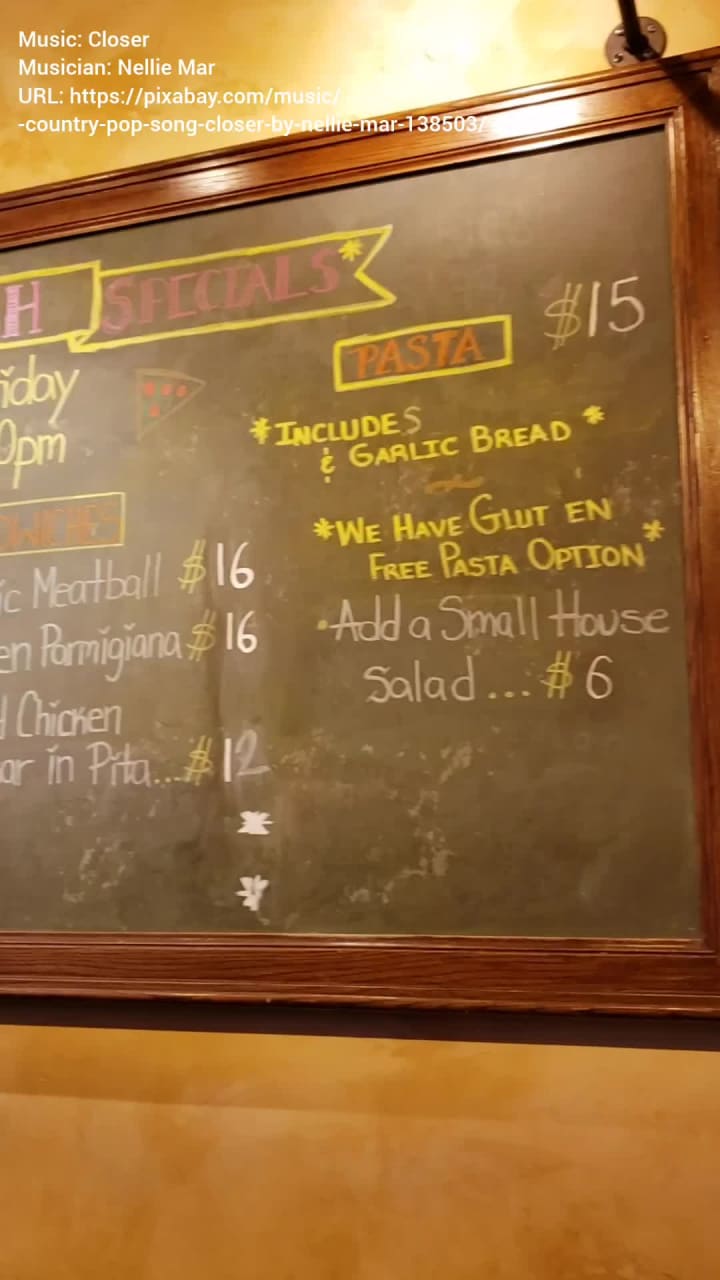 Music: Closer
Musician: Nellie Mar
URL: https://pixabay.com/music/-
-country-pop-song-closer-by-nellie-mar-138503/
H SPECIALS*
iday
0pm
WICHES
ic Meatball $16
en Parmigiana $16
d Chicken
ar in Pita...$12
PASTA $15
*INCLUDES
& GARLIC BREAD *
*WE HAVE GLUT EN
FREE PASTA OPTION *
·Add a Small House
Salad...$6